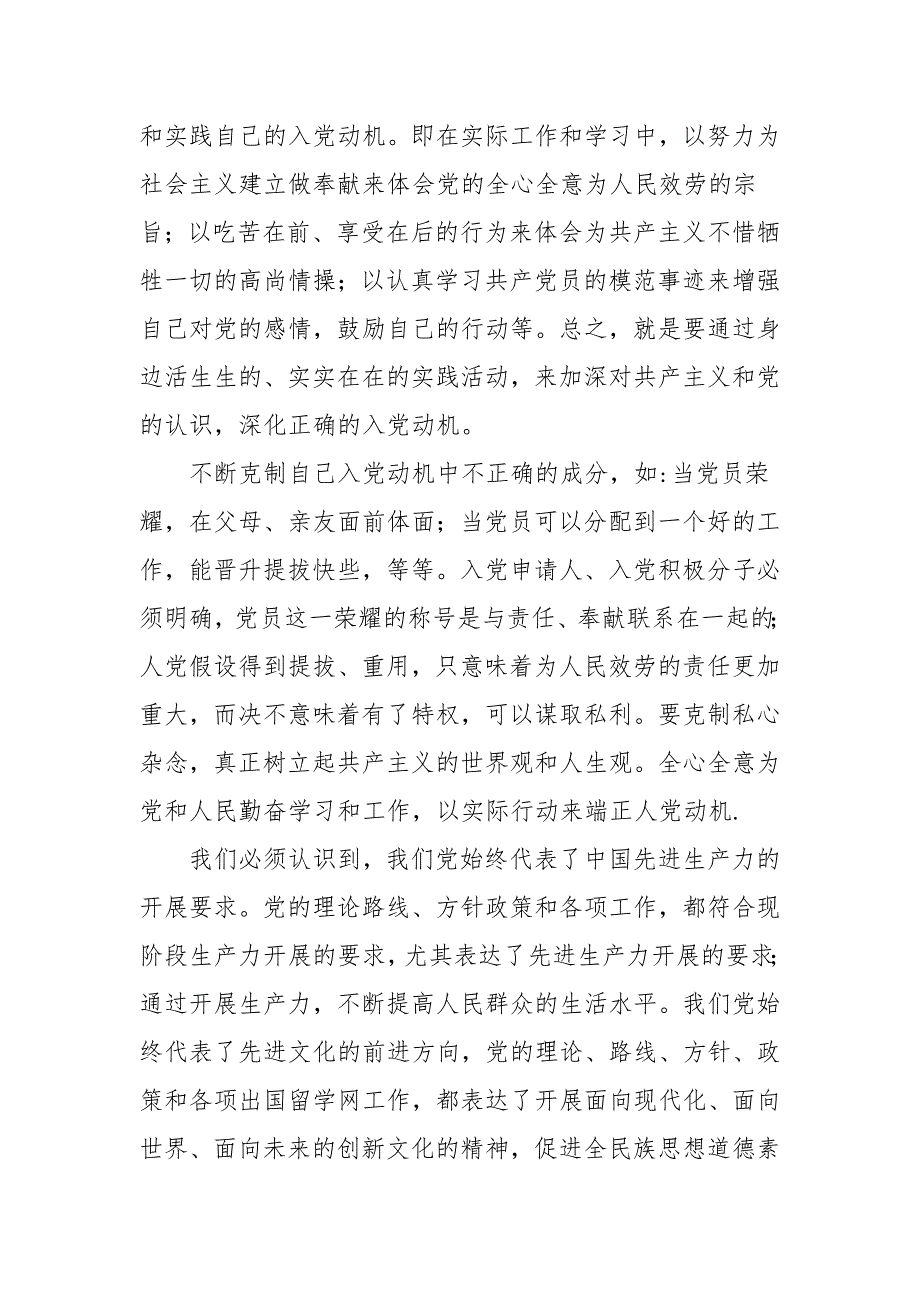 和实践自己的入党动机。即在实际工作和学习中，以努力为
社会主义建立做奉献来体会党的全心全意为人民效劳的宗
旨；以吃苦在前、享受在后的行为来体会为共产主义不惜牺
牲一切的高尚情操；以认真学习共产党员的模范事迹来增强
自己对党的感情，鼓励自己的行动等。总之，就是要通过身
边活生生的、实实在在的实践活动，来加深对共产主义和党
的认识，深化正确的入党动机。
不断克制自己入党动机中不正确的成分，如:当党员荣
耀，在父母、亲友面前体面；当党员可以分配到一个好的工
作，能晋升提拔快些，等等。入党申请人、入党积极分子必
须明确，党员这一荣耀的称号是与责任、奉献联系在一起的；
人党假设得到提拔、重用，只意味着为人民效劳的责任更加
重大，而决不意味着有了特权，可以谋取私利。要克制私心
杂念，真正树立起共产主义的世界观和人生观。全心全意为
党和人民勤奋学习和工作，以实际行动来端正人党动机.
我们必须认识到，我们党始终代表了中国先进生产力的
开展要求。党的理论路线、方针政策和各项工作，都符合现
阶段生产力开展的要求，尤其表达了先进生产力开展的要求；
通过开展生产力，不断提高人民群众的生活水平。我们党始
终代表了先进文化的前进方向，党的理论、路线、方针、政
策和各项出国留学网工作，都表达了开展面向现代化、面向
世界、面向未来的创新文化的精神，促进全民族思想道德素